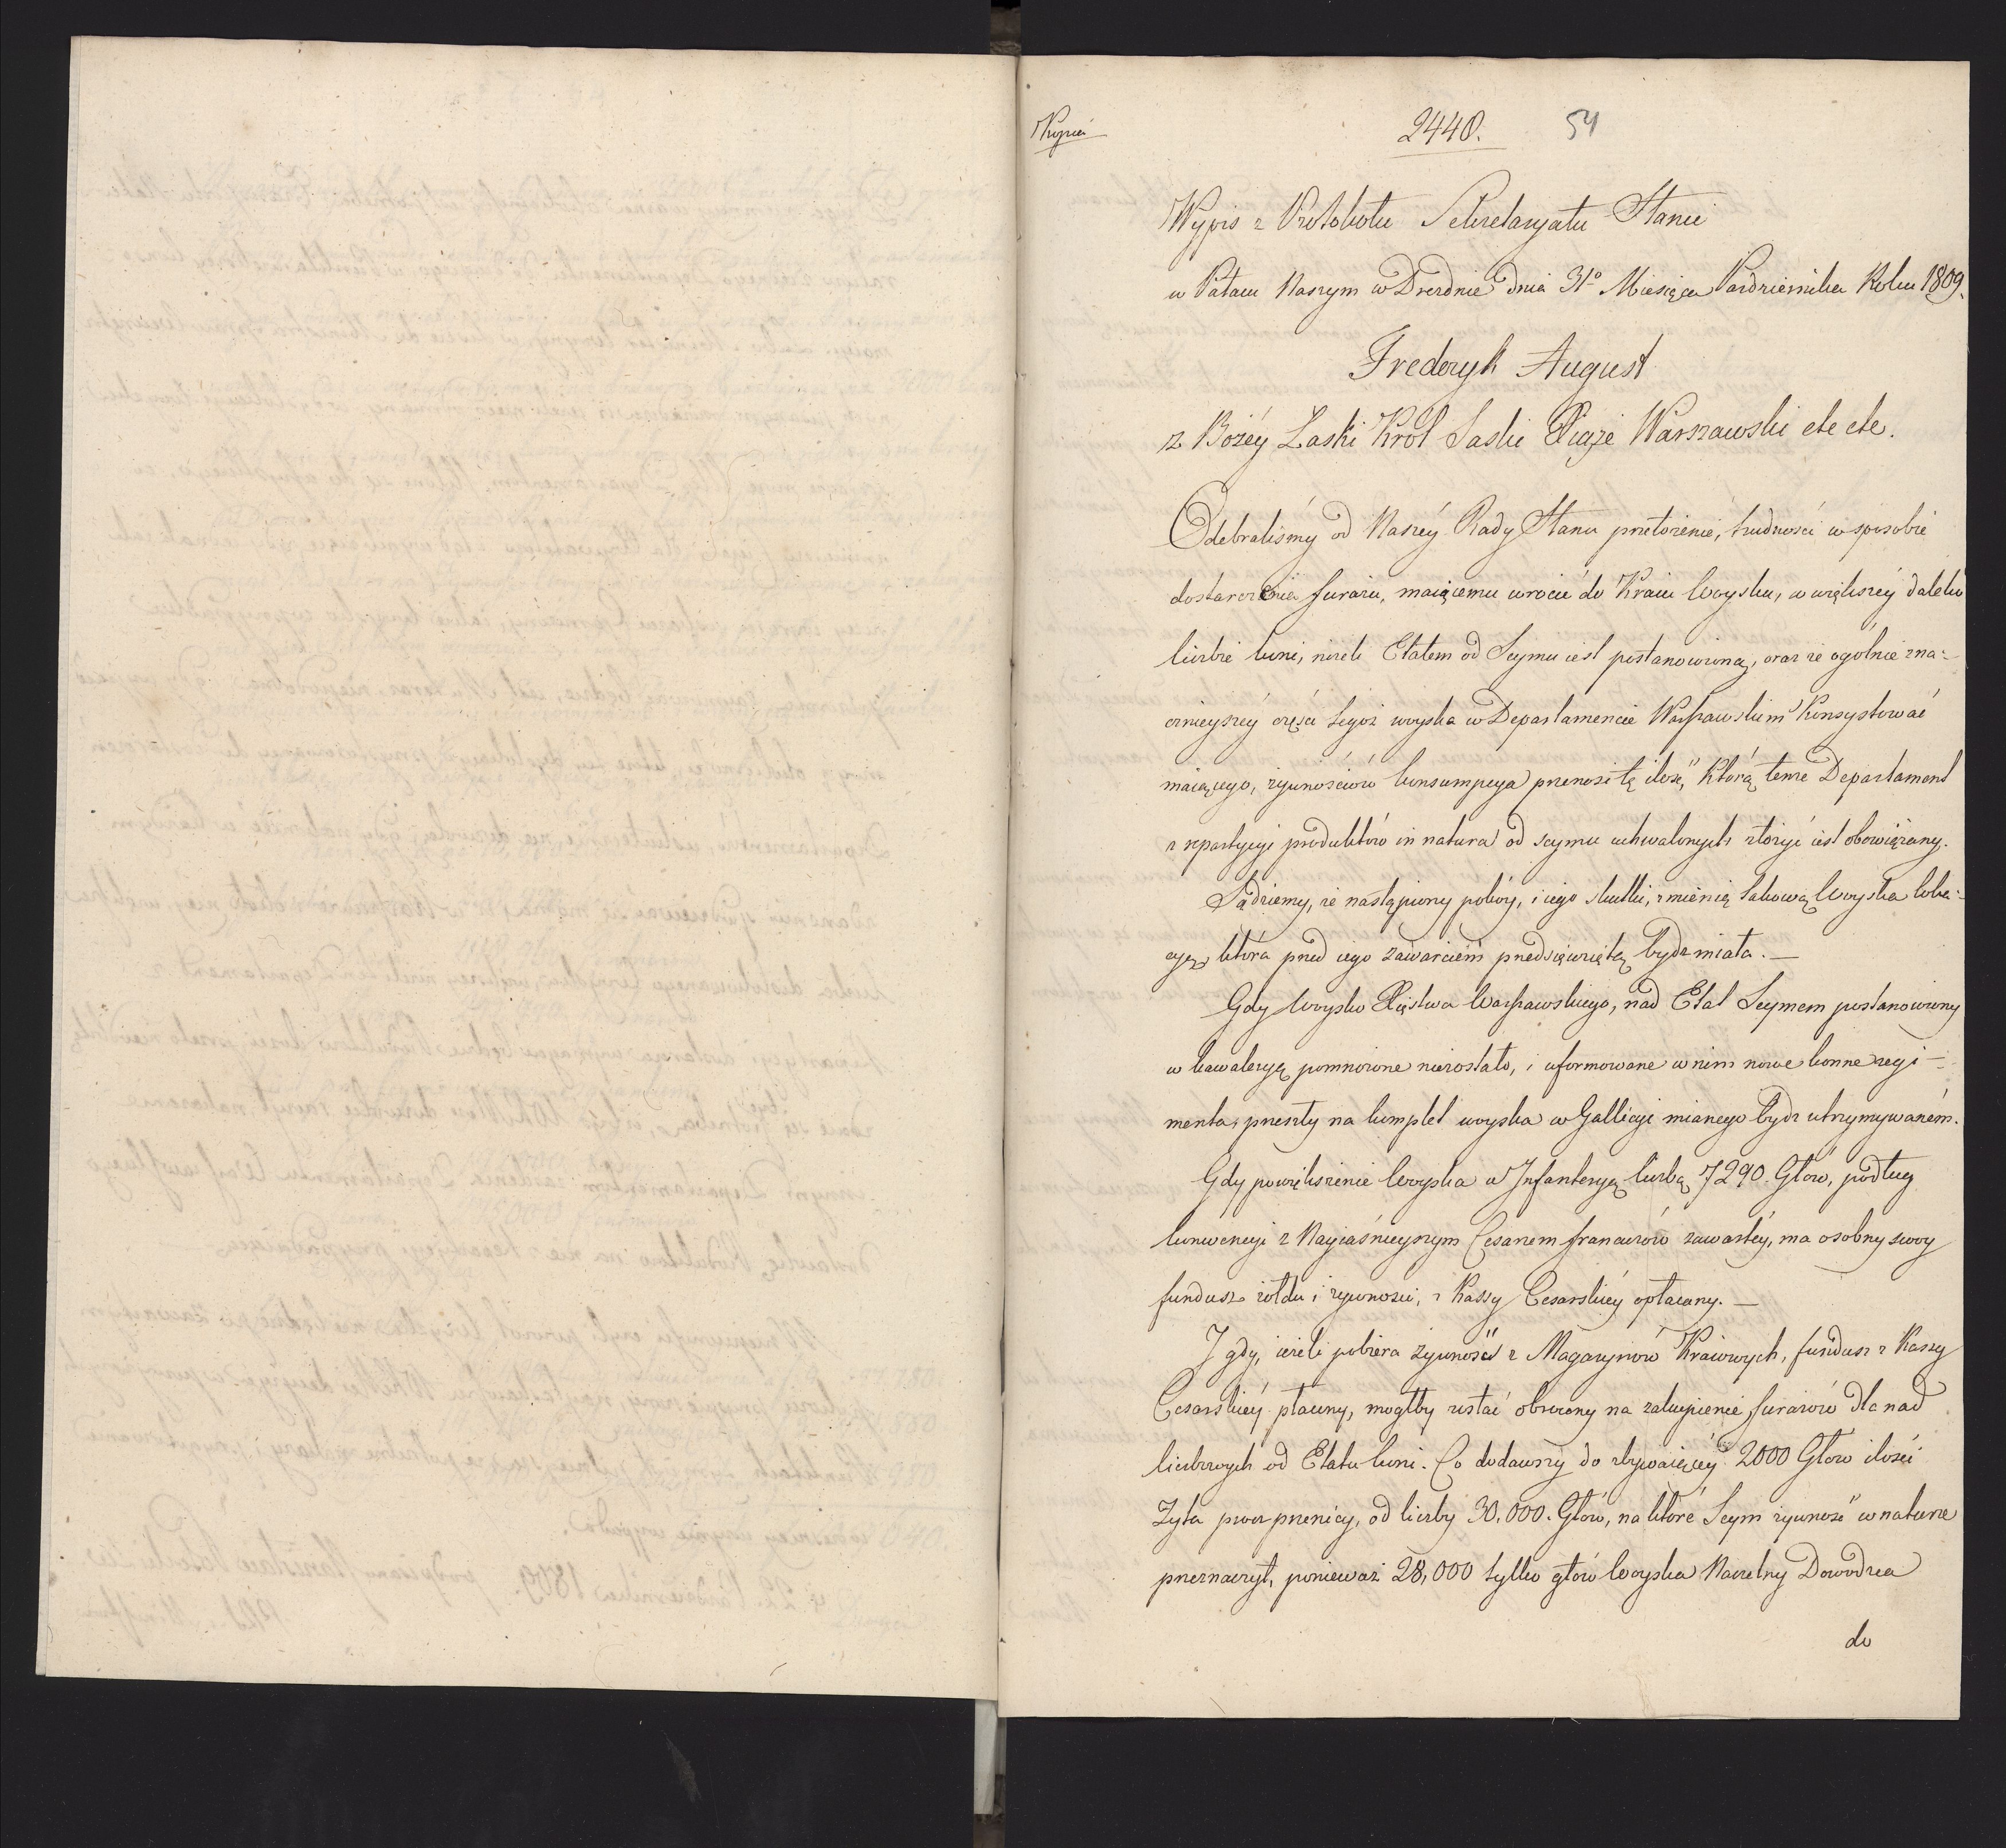 Kopia
2440. 54
Wypis z Protokołu Sekretaryatu Stanu
w Pałacu Naszym w Dreźnie dnia 31º Miesiąca Października Roku 1809.
Frederyk August
z Bożéy Łaski Król Saski Xiąże Warszawski etc etc.
Odebraliśmy od Naszéy Rady Stanu przełożenie, trudności w sposobie
dostarczenia furażu, maiącemu wrócić do Kraiu Woysku, w większéy daleko
liczbie koni, niżeli Etatem od Seymu iest postanowioną, oraz że ogólnie zna-
cznieyszéy części tegoż woyska w Departamencie Warszawskim Konsystować
maiącego, żywnościów konsumpcya przenosi tę ilość, którą tenże Departament
z repartycyi produktów in natura od seymu uchwalonych złożyć iest obowiązany.
Sądziemy, że nastąpiony pokóy, i iego skutki, zmienią takową Woyska loka-
cyą, która przed iego zawarciem przedsięwziętą bydź miała. —
Gdy Woysko Xięstwa Warszawskiego, nad Etat Seymem postanowiony
w kawaleryą pomnożone niezostało, i uformowane w nim nowe konne regi-
menta, przeszły na komplet woyska w Gallicyi mianego bydź utrzymywaném.
Gdy powiększenie Woyska w Infanteryą liczbą 7290. Głów, podług
konwencyi z Nayiaśnieyszym Cesarzem francuzów zawartéy, ma osobny swoy
fundusz żołdu i żywności, z Kassy Cesarskiéy opłacany. —
I gdy, ieżeli pobiera żywność z Magazynów Kraiowych, fundusz z Kassy
Cesarskiéy płacony, mógłby zostać obrócony na zakupienie furażów dla nad
liczbowych od Etatu koni. Co dodawszy do zbywaiącéy 2000 Głów ilości
Żyta prócz pszenicy, od liczby 30,000. Głów, na które Seym żywność w naturze
przeznaczył, ponieważ 28,000 tylko głów Woyska Naczelny Dowódzca
do